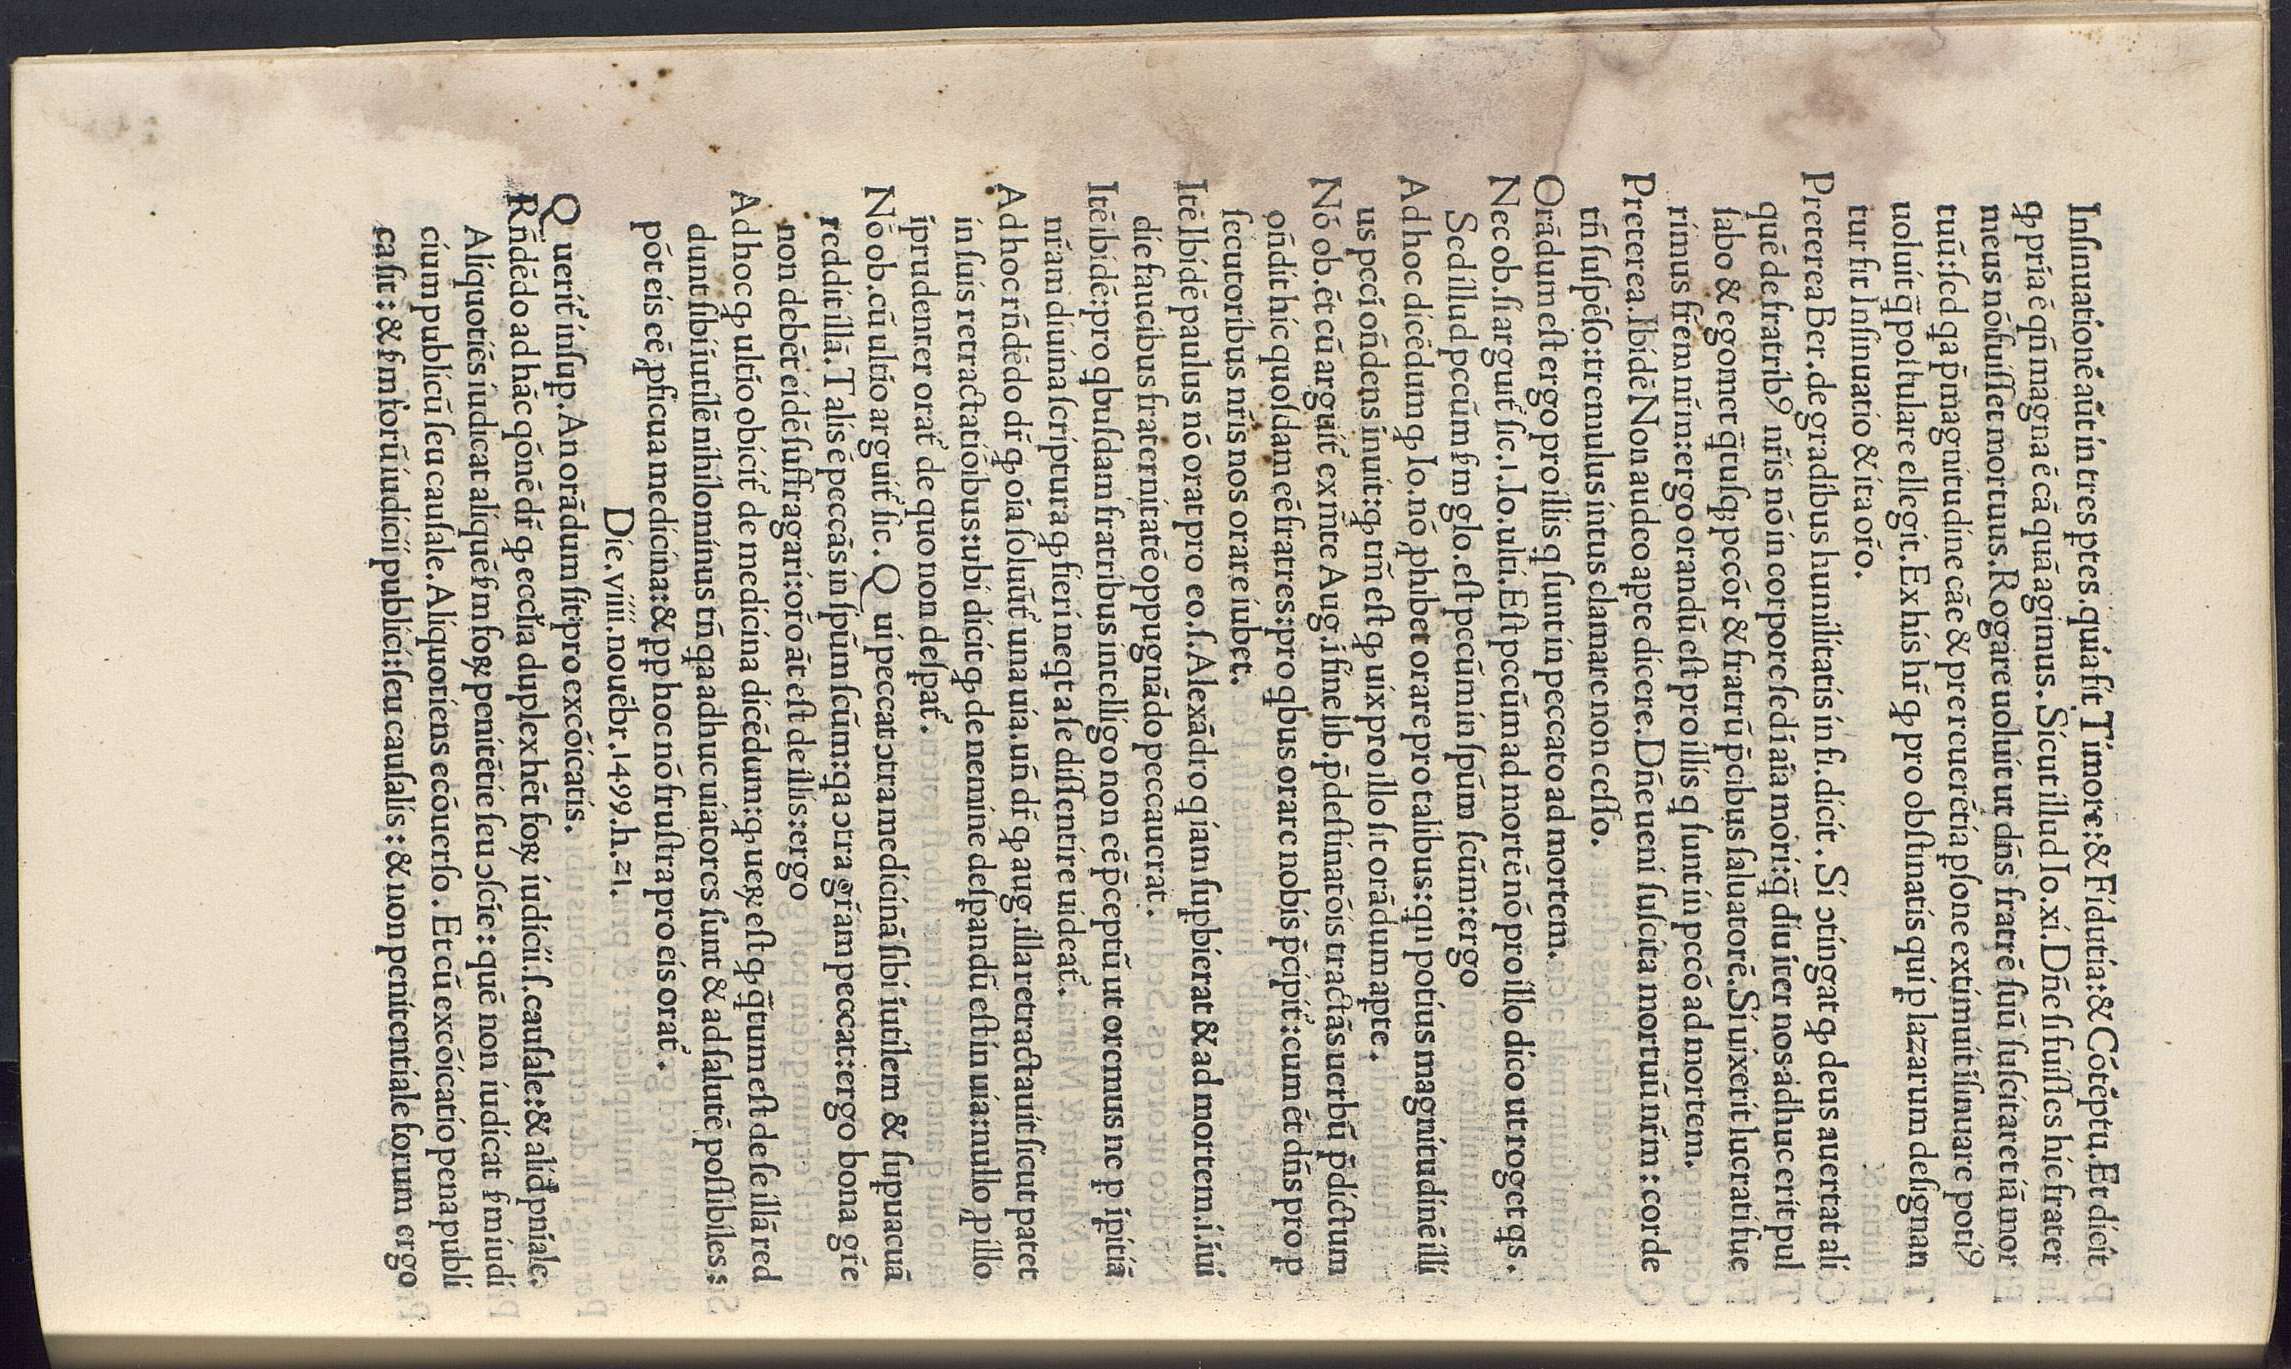 Inſinuationē aūt in tres ptes. quia ſit Timore: & Fidutia: & Cōtēptu. Et dicit
ꝙ pr̄ia ē qn̄ magna ē cā quā agimus. Sicut illud Io. xi. Dn̄e ſi fuiſſes hic frater
meus nō fuiſſet mortuus. Rogare uoluit ut dn̄s fratrē ſuū ſuſcitaret iā mor
tuū: ſed qa p̄ magnitudine cāe & pre reuerētia pſone extimuit iſinuare poti⁹
uoluit q̄ poſtulare ellegit. Ex his hr̄ ꝙ pro obſtinatis qui p lazarum deſignan
tur fit Inſinuatio & ita or̄o.
Preterea Ber. de gradibus humilitatis in fi. dicit. Si ɔtingat ꝙ deus auertat ali
quē de fratrib⁹ nr̄is nō in corpore ſed i aīa mori: q̄diu iter nos adhuc erit pul
ſabo & egomet q̄tuſqꝫ pccōr & fratrū p̄cibus ſaluatorē. Si uixerit lucrati ſue
rimus fr̄em nr̄m: ergo orandū eſt pro illis q ſunt in pccō ad mortem.
Preterea. Ibidē Non audeo apte dicere. Dn̄e ueni ſuſcita mortuū nr̄m: corde
tn̄ ſuſpēſo: tremulus intus clamare non ceſſo.
Orādum eſt ergo pro illis q ſunt in peccato ad mortem.
Nec ob. ſi arguiť ſic. 1. Io. ulti. Eſt pccūm ad mortē nō pro illo dico ut roget qs.
Sed illud pccūm ẜm glo. eſt pccūm in ſpūm ſcūm: ergo
Ad hoc dicēdum ꝙ Io. nō ꝓhibet orare pro talibus: qn potius magnitudinē illi
us pccī on̄dens inuit: ꝙ tm̄ eſt ꝙ uix pro illo ſit orādum apte.
Nō ob. ēt cū arguiť ex mēte Aug. i fine lib. p̄deſtinatōis tractās uerbū p̄dictum
on̄dit hic quoſdam eē fratres: pro qbus orare nobis p̄cipiť: cum ēt dn̄s pro ꝑ
ſecutoribus nr̄is nos orare iubet.
Itē Ibidē paulus nō orat pro eo. ſ. Alexādro q iam ſupbierat & ad mortem. i. īui
die faucibus fraternitatē oppugnādo peccauerat.
Itē ibidē: pro qbuſdam fratribus intelligo non eē p̄ceptū ut oremus ne ꝑ īpitiā
nr̄am diuina ſcriptura ꝙ fieri neqt a ſe diſſentire uideať.
Ad hoc rn̄dēdo dr̄ ꝙ oīa ſoluūť una uia. un̄ dr̄ ꝙ aug. illa retractauit ſicut patet
in ſuis retractatiōibus: ubi dicit ꝙ de nemine deſpandū eſt in uia: nullo ꝓ illo
īprudenter orať de quo non deſpať.
Nō ob. cū ultīo arguiť ſic. Qui peccat ɔtra medicinā ſibi īutilem & ſupuacuā
reddit illā. Talis ē peccās in ſpūm ſcūm: qa ɔtra gr̄am peccat: ergo bona gr̄e
non debēt eidē ſuffragari: or̄o āt eſt de illis: ergo
Ad hoc ꝙ ultīo obiciť de medicina dicēdum: ꝙ ueꝝ eſt ꝙ q̄tum eſt de ſe illā red
dunt ſibi īutilē nihilominus tn̄ qa adhuc uiatores ſunt & ad ſalutē poſſibiles:
pōt eis eē ꝓficua medicina: & ꝓp hoc nō fruſtra pro eis orať.
Die. viiii. nouēbr. 1499. h. 21.
Queriť inſup. An orādum ſit pro excōicatis.
Rn̄dēdo ad hāc qōnē dr̄ ꝙ ecc̄lia duplex hēt foꝝ iudicii. ſ. cauſale: & aliđ pn̄iale.
Aliquotiēs iudicat aliquē ẜm foꝝ penitētie ſeu ɔſcīe: quē non iudicat ẜm iudi
cium publicū ſeu cauſale. Aliquotiens ecōuerſo. Et cū excōicatio pena publi
ca ſit: & ẜm forū iudicii publici: ſeu cauſalis: & non penitentiale forum ergo